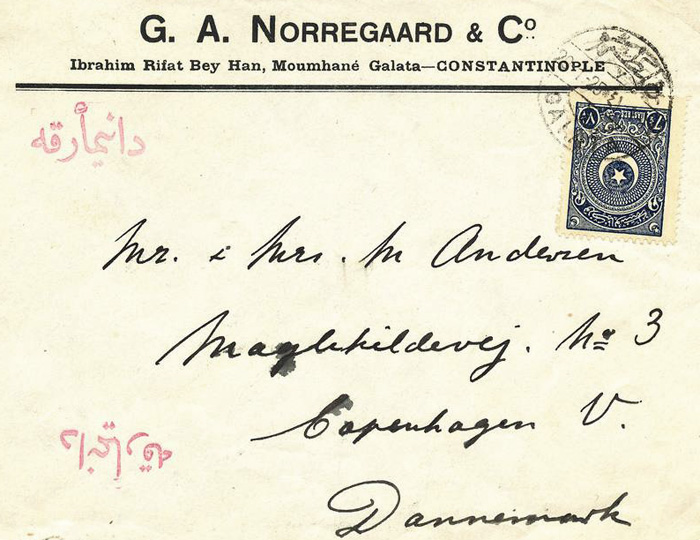 G. A. NORREGAARD & Cº
Ibrahim Rifat Bey Han, Moumhané Galata—CONSTANTINOPLE
دانیمارقه
Mr. & Mrs. M Andersen
Maglekildevej. Nº 3
Copenhagen V.
Dannemark